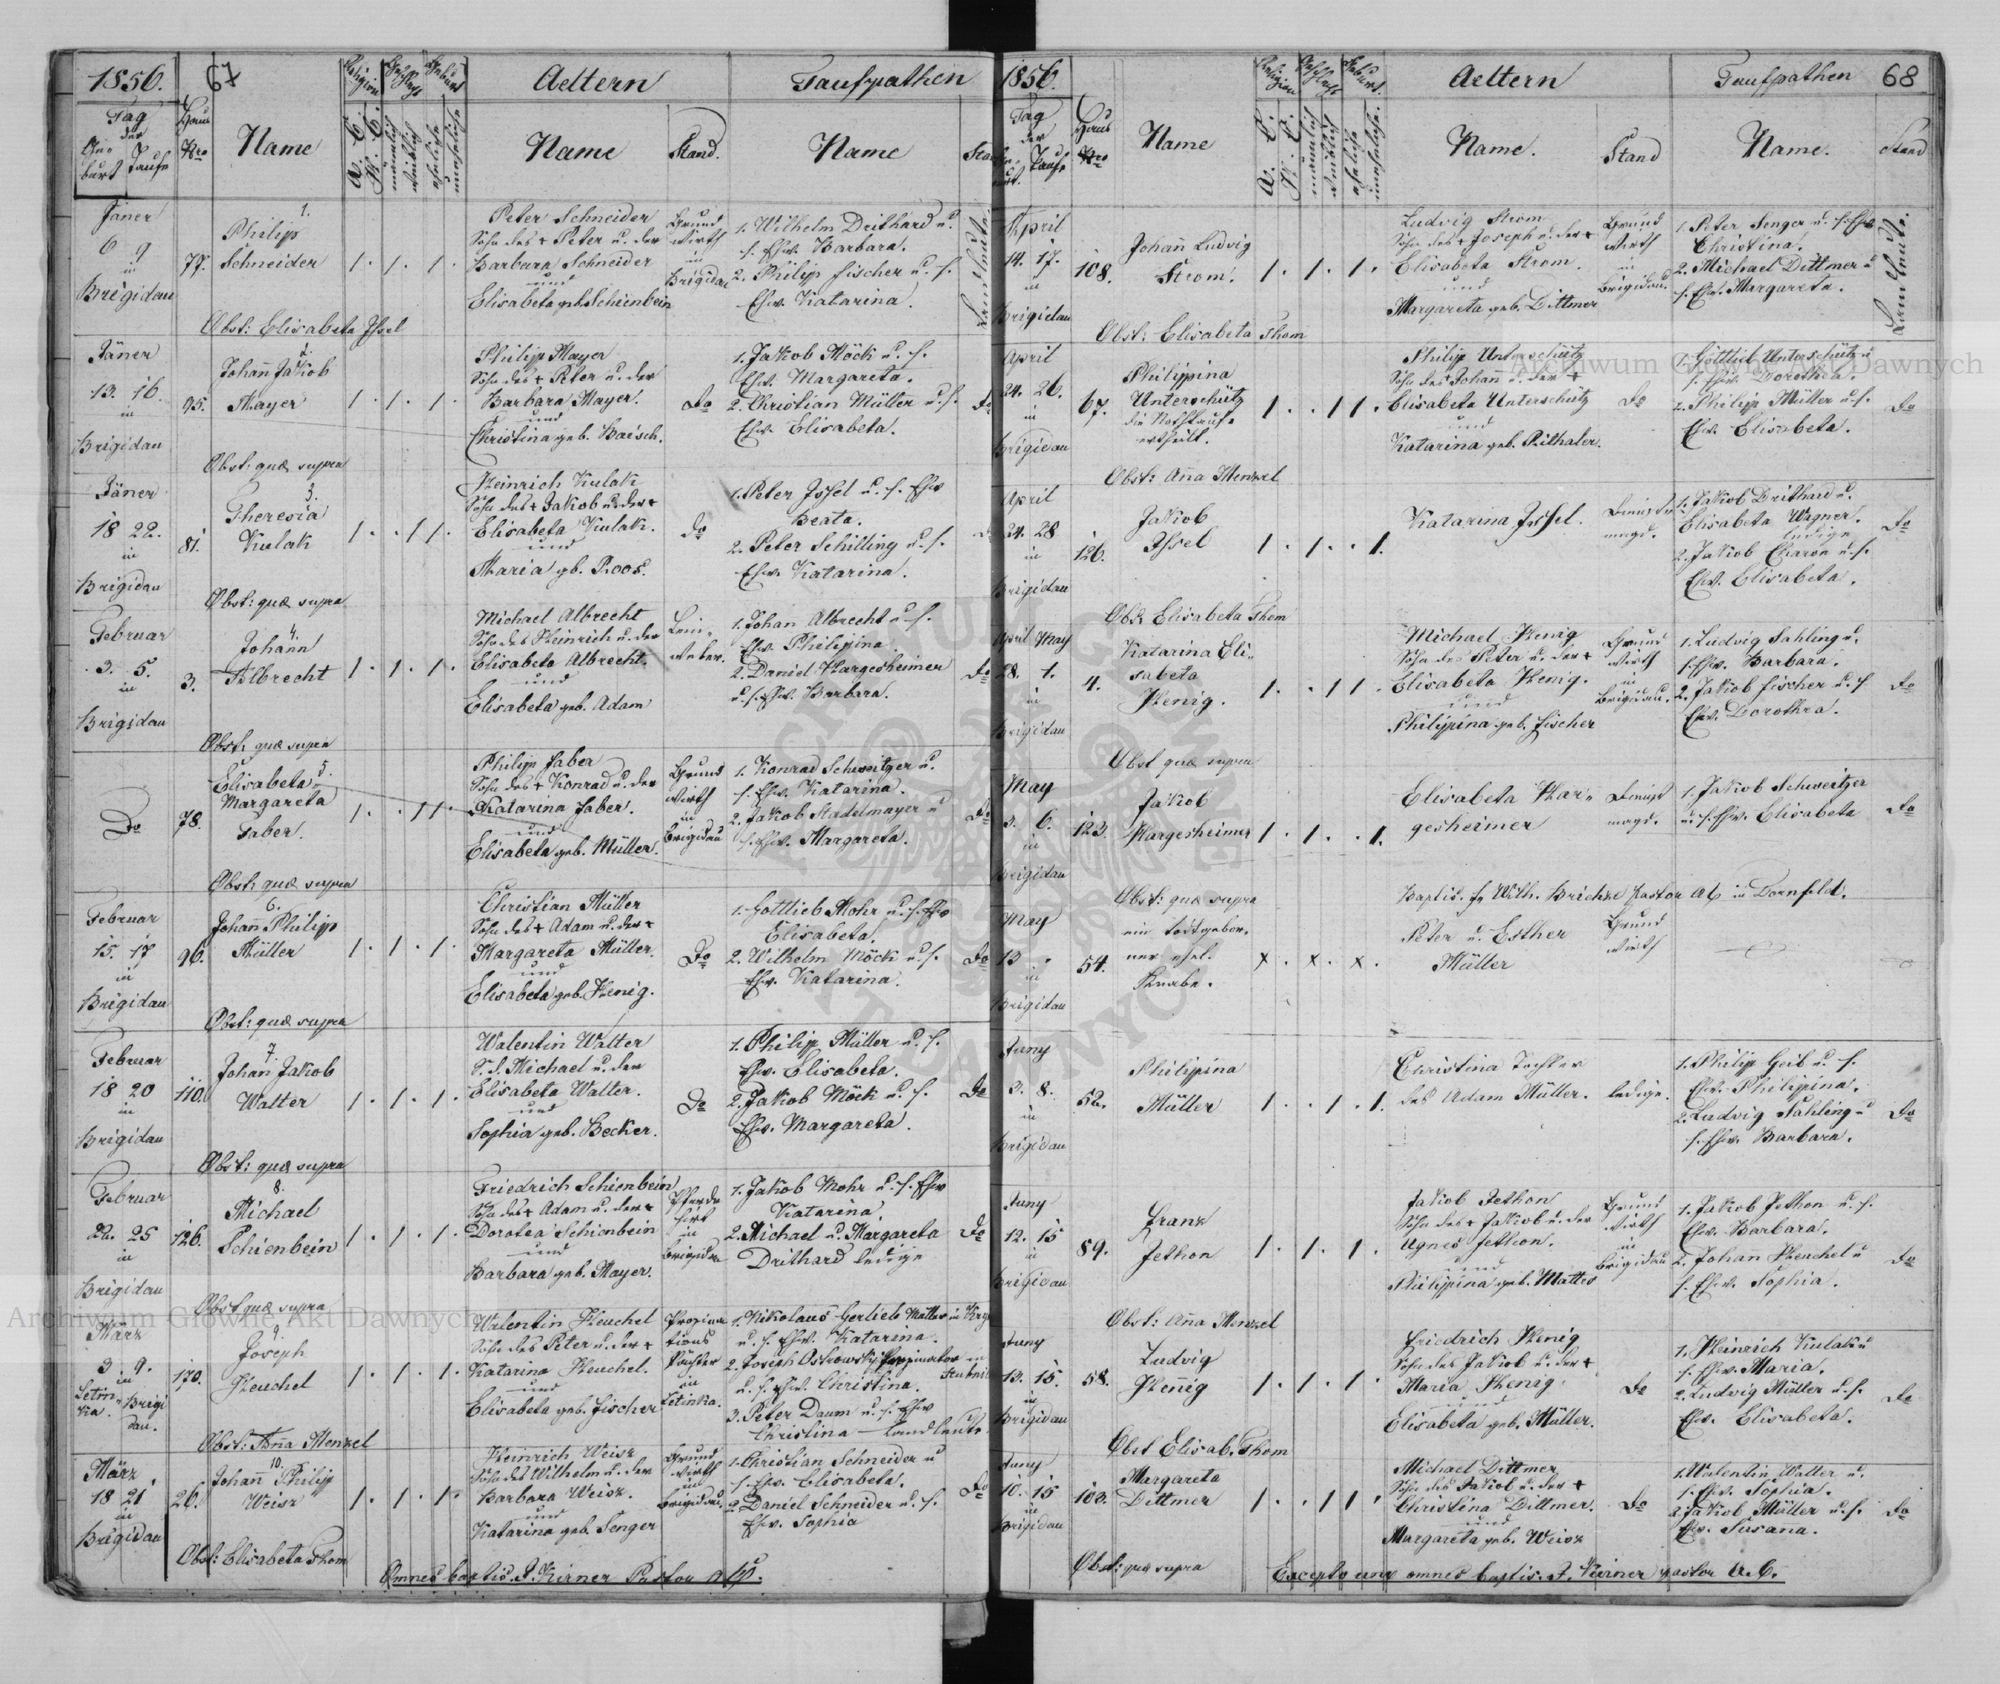 1856. 67 Religion Geschlecht Geburt Aeltern Taufpathen
Tag der Geburt Taufe Haus Nro Name A. C. H. C. männlich weiblich eheliche uneheliche Name Stand. Name Stand
1.
Jäner 6 9 in Brigidau
77.
Philipp
Schneider
1 . 1 . 1 .
Peter Schneider
Sohn des + Peter u. der
Barbara Schneider
und
Elisabeta geb. Scheinbein
Grund
wirth
in
Brigidau
1. Wilhelm Drithard u.
s. Ehw. Barbara.
2. Philip Fischer u. s.
Ehw. Katarina.
Landleute.
Obst: Elisabeta Issel
2.
Jäner
13. 16.
in
Brigidau
95.
Johañ Jakob
Mayer
1 . 1 . 1 .
Philip Mayer
Sohn des + Peter u. der
Barbara Mayer.
und
Christina geb. Baisch.
Do
1. Jakob Möck u. s.
Ehw. Margareta.
2. Christian Müller u. s.
Ehw. Elisabeta.
Do
Obst: quæ supra
3.
Jäner
18 22.
in
Brigidau
81.
Theresia
Kulak
1 . . 1 1 .
Heinrich Kulak
Sohn des + Jakob u. der +
Elisabeta Kulak.
und
Maria gb. Roos.
Do
1. Peter Issel u. s. Ehw
Beata.
2. Peter Schilling u. s.
Ehw. Katarina.
Obst: quæ supra
4.
Februar
3. 5.
in
Brigidau
3.
Johañn
Albrecht
1 . 1 . 1 .
Michael Albrecht
Sohn des Heinrich u. der
Elisabeta Albrecht.
und
Elisabeta geb. Adam
Lein-
weber.
1. Johan Albrecht u. s.
Ehw. Philipina.
2. Daniel Hargesheimer
u. s. Ehw. Barbara.
Do
Obst: quæ supra
5.
Do
78.
Elisabeta
Margareta
Faber.
1 . . 1 1 .
Philip Faber
Sohn des + Konrad u. der
Katarina Faber.
und
Elisabeta geb. Müller.
Grund
wirth
in
Brigidau
1. Konrad Schweitzer u.
s. Ehw. Katarina.
2. Jakob Stadelmayer u
s. Ehw. Margareta.
Do
Obst: quæ supra
6.
Februar
15. 17
in
Brigidau
96.
Johañ Philipp
Müller
1 . 1 . 1 .
Christian Müller
Sohn des + Adam u. der +
Margareta Müller.
und
Elisabeta geb. Henig.
Do
1. Gottlieb Mohr u. s. Ehw
Elisabeta.
2. Wilhelm Möck u. s.
Ehw. Katarina.
Do
Obst: quæ supra
7.
Februar
18 20
in
Brigidau
110.
Johañ Jakob
Walter
1 . 1 . 1 .
Walentin Walter
S. d. Michael u. der
Elisabeta Walter.
und
Sophia geb. Becker.
Do
1. Philip Müller u. s.
Ehw. Elisabeta.
2. Jakob Möck u. s.
Ehw. Margareta.
Do
Obst: quæ supra
8.
Februar
22. 25
in
Brigidau
126.
Michael
Schienbein
1 . 1 . 1 .
Friedrich Schienbein
Sohn des + Adam u. der +
Dorotea Schienbein
und
Barbara geb. Mayer.
Pferde
hirt
in
Brigidau
1. Jakob Mohr u. s. Ehw
Katarina
2. Michael u. Margareta
Drithard ledige
Do
Obst quæ supra
9.
März
3. 9.
in
Letinka. Brigidau.
170.
Joseph
Heuchel
1 . 1 . 1 .
Walentin Heuchel
Sohn des Peter u. der +
Katarina Heuchel.
und
Elisabeta geb. Fischer
Propina
tions
Pächter
in
Letinka.
1. Nikolaus Gerlieb Müller in Brigi
u. s. Ehw. Katarina.
2. Joseph Ostrowsky Propinator in
u. s. Ehw. Christina.
3. Peter Daum u. s. Ehw
Christina — Landleute
Obst: Ana Menzel
10.
März.
18 21
in
Brigidau
26.
Johañ Philip
Weisz
1 . 1 . 1 .
Heinrich Weisz
Sohn des Wilhelm u. der
Barbara Weisz.
und
Katarina geb. Senger
Grund
wirth
in
Brigidau.
1. Christian Schneider u
s. Ehw. Elisabeta.
2. Daniel Schneider u. s.
Ehw. Sophia
Do
Obst: Elisabeta Thom
Omnes baptis. J. Kirner Pastor
1856. Religion Geschlecht Geburt. Aeltern Taufpathen 68
Tag der Geburt. Taufe Haus Nro Name A. C. H. C. männlich weiblich eheliche uneheliche. Name. Stand Name. Stand
April
14. 17.
in
Brigidau
108.
Johañ Ludvig
Strom.
1 . 1 . 1 .
Ludvig Strom
Sohn des + Joseph u. der +
Elisabeta Strom.
und
Margareta geb. Dittmer
Grund
wirth
in
Brigidau.
1. Peter Senger u. s. Ehw
Christina.
2. Michael Dittmer u
s. Ehw. Margareta.
Landleute.
Obst: Elisabeta Thom
April
24. 26.
in
Brigidau
67.
Philippina
Unterschütz
die Nothtaufe
ertheilt.
1 . . 1 1 .
Philip Unterschütz
Sohn des Johañ u. der +
Elisabeta Unterschütz
und
Katarina geb. Rithaler.
Do
1. Gottlieb Unterschütz u
s. Ehw. Dorothea.
2. Philip Müller u. s.
Ehw. Elisabeta.
Do
Obst: Aña Menzel
April
24. 28
in
Brigidau
126.
Jakob
Issel
1 . 1 . . 1.
Katarina Jssel.
Dienst
magd.
1. Jakob Drithard u.
Elisabeta Wagner.
ledige
2. Jakob Charon u. s.
Ehw. Elisabeta.
Do
Obst Elisabeta Thom
April May
28. 1.
in
Brigidau
4.
Katarina Eli-
sabeta
Henig.
1 . . 1 1 .
Michael Henig
Sohn des Peter u. der +
Elisabeta Henig.
und
Philippina geb. Fischer
Grund
wirth
in
Brigidau.
1. Ludvig Sahling u.
s. Ehw. Barbara.
2. Jakob Fischer u. s
Ehw. Dorothea.
Do
Obst quæ supra
May
3. 6.
in
Brigidau
123.
Jakob
Hargesheimer
1 . 1 . . 1.
Elisabeta Har-
gesheimer
Dienst
magd.
1. Jakob Schweitzer
u. s. Ehw. Elisabeta
Do
Obst: quæ supra
Baptis. Wilh. Pastor in Dornfeld.
May
13 .
in
Brigidau
54.
ein todtgebor-
ner ehel.
Knabe.
x . x . x .
Peter u. Esther
Müller
Grund
wirth
Juny
3. 8.
in
Brigidau
52.
Philippina
Müller
1 . . 1 . 1.
Christina Tochter
des Adam Müller.
ledige.
1. Philip Geib u. s.
Ehw. Philippina.
2. Ludvig Sahling u
s. Ehw. Barbara.
Do
Juny
12. 15
in
Brigidau
89.
Franz
Jethon
1 . 1 . 1 .
Jakob Jethon
Sohn des + Jakob u. der
Agnes Jethon.
und
Philippina geb. Mattes
Grund
wirth
in
Brigidau
1. Jakob Jethon u. s.
Ehw. Barbara.
2. Johan Heuchel u
s. Ehw. Sophia.
Do
Obst: Aña Menzel
Juny
13. 15.
in
Brigidau
58.
Ludvig
Heñig
1 . 1 . 1 .
Friedrich Henig
Sohn des Jakob u. der +
Maria Henig
und
Elisabeta geb. Müller.
Do
1. Heinrich Kulak u
s. Ehw. Maria.
2. Ludvig Müller u. s.
Ehw. Elisabeta.
Do
Obst Elisab. Thom
Juny
10. 15
in
Brigidau
103.
Margareta
Dittmer
1 . . 1 1 .
Michael Dittmer
Sohn des Jakob u. der +
Christina Dittmer.
und
Margareta geb. Weisz
Do
1. Walentin Walter u.
s. Ehw. Sophia.
2. Jakob Müller u. s.
Ehw. Susana.
Do
Obst: quæ supra
Excepto uno omnes baptis. J. Kirner pastor A. C.
Archiwum Główne Akt Dawnych
Archiwum Główne Akt Dawnych
ARCHIWUM GŁÓWNE AKT DAWNYCH